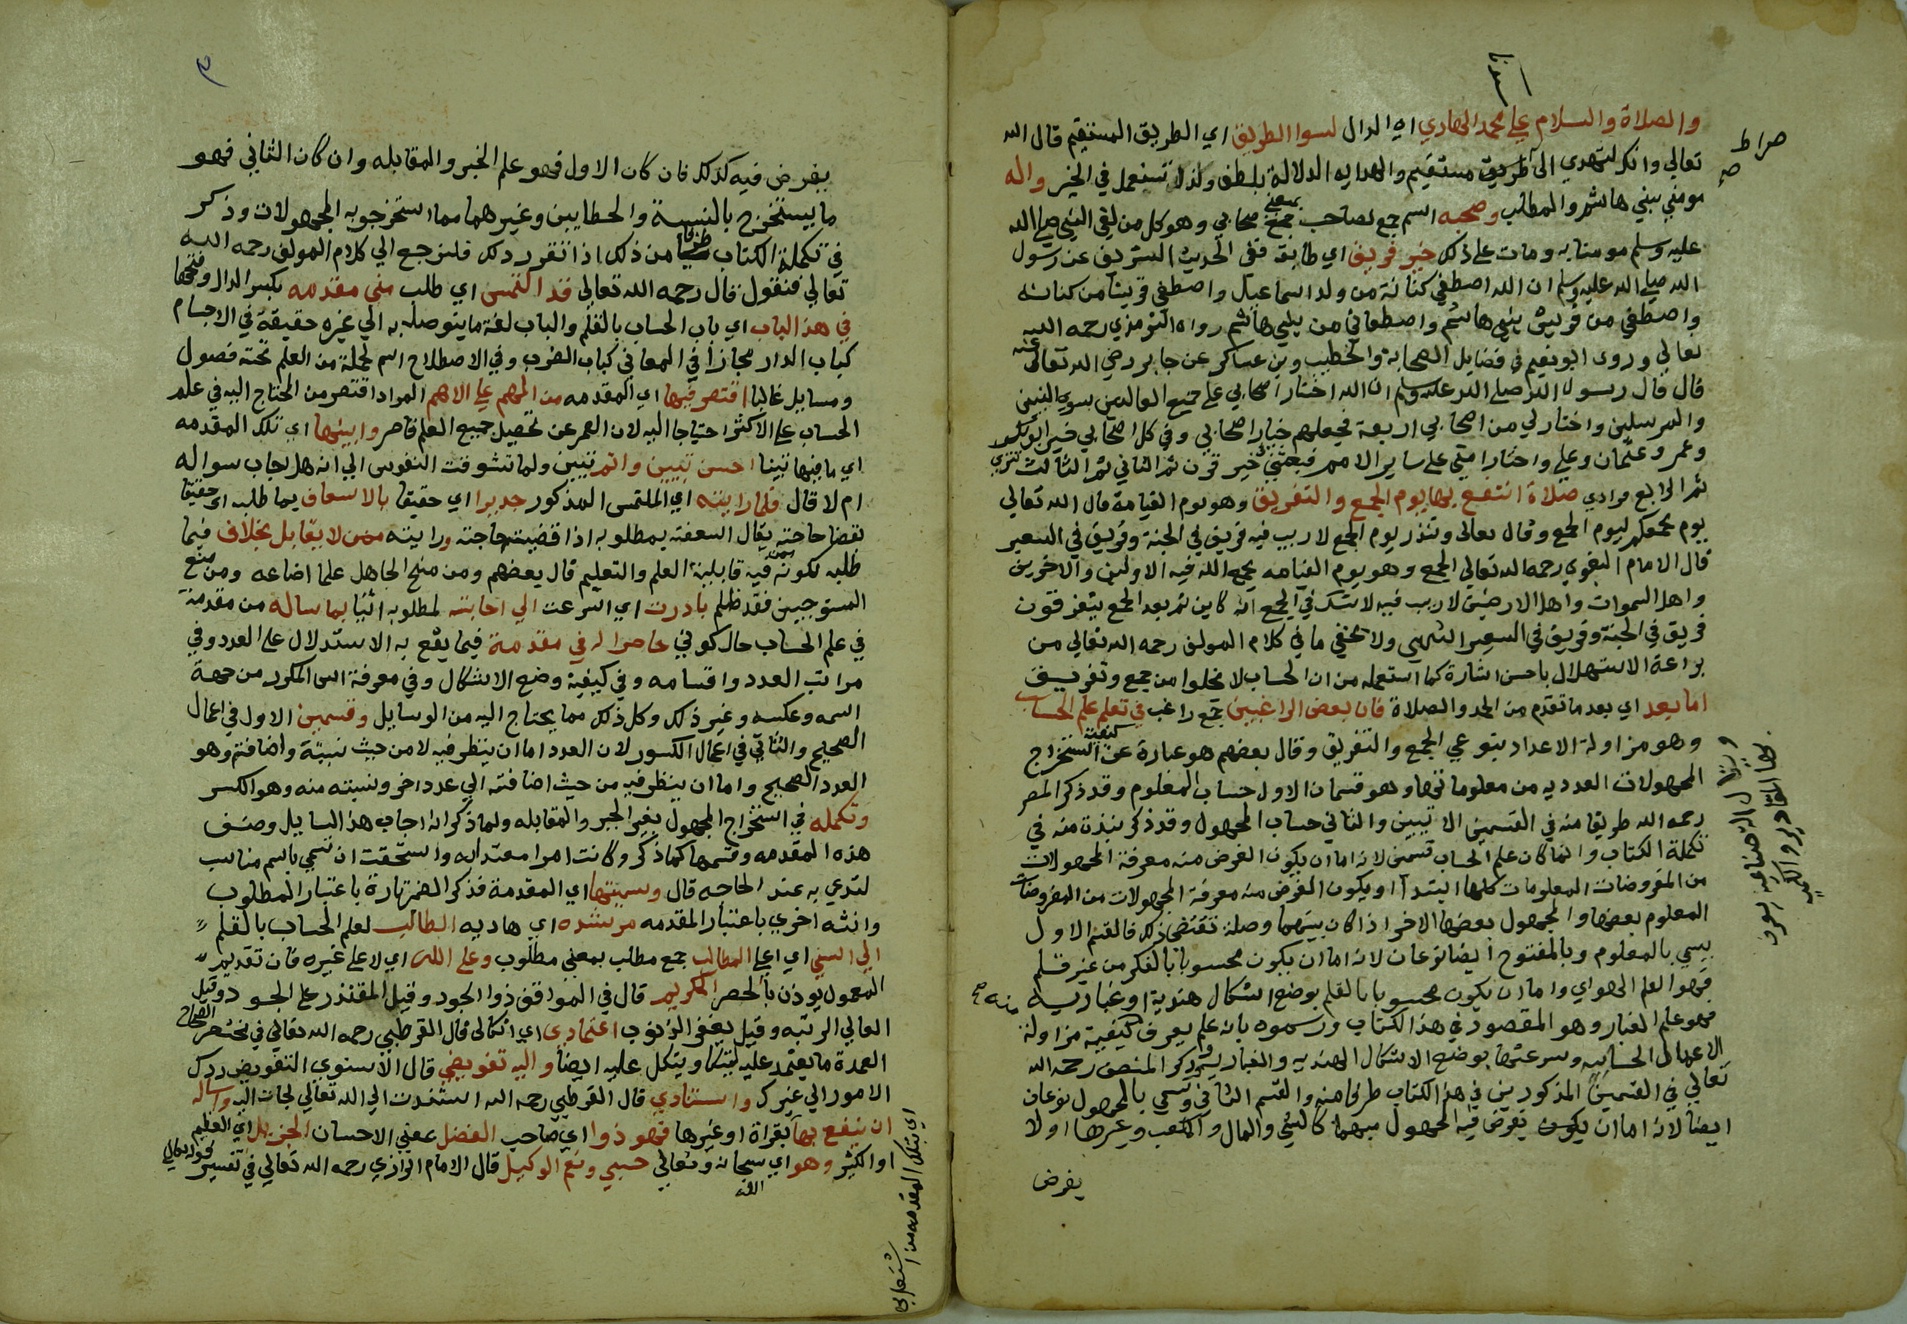 والصلاة والسلام علي محمد الهادي اي الدال لسوا الطريق اي الطريق المستقيم قال الله
تعالي وانك لتهدي الى طريق مستقيم والهدايه الدلالة بلطف ولذلا تستعمل في الخير واله
صراط
صح
مومني بني هاشم والمطلب وصحبه اسم جمع لصاحب بمعني صحابي وهو كل من لقي النبي صلي الله
عليه وسلم مومنا به ومات علي ذلك خير فريق اي طايفة ففي الحديث الشريف عن رسول
الله صلي الله عليه وسلم ان الله اصطفي كنانة من ولد اسماعيل واصطفي قريشا من كنانه
واصطفي من قريش بني هاشم واصطفاني من بني هاشم رواه الترمذي رحمه الله
تعالي وروى ابو نعيم في فضايل الصحابة والخطيب وبن عساكر عن جابر رضي الله تعالي عنه
قال قال رسول الله صلي الله عليه وسلم ان الله اختار اصحابي علي جميع العالمين سوي النبيين
والمرسلين واختار لي من اصحابي اربعة فجعلهم خيار اصحابي وفي كل اصحابي خير ابو بكر
وعمر وعثمان وعلي واختار امتي علي ساير الامم فبعثني في خير قرن ثم الثاني ثم الثالث تتري
ثم الرابع فرادي صلاة انتفع بها يوم الجمع والتفريق وهو يوم القيامة قال الله تعالي
يوم يجمعكم ليوم الجمع وقال تعالى وتنذر يوم الجمع لا ريب فيه فريق في الجنة وفريق في السعير
قال الامام البغوي رحمه الله تعالي الجمع وهو يوم القيامه يجمع الله فيه الاولين والاخرين
واهل السموات واهل الارضين لا ريب فيه لا شك في الجمع انه كاين ثم بعد الجمع يتفرقون
فريق في الجنة وفريق في السعير انتهي ولا يخفي ما في كلام المولف رحمه الله تعالي من
براعة الاستهلال باحسن اشارة كما استعمله من ان الحساب لا يخلوا من جمع وتفريق
اما بعد اي بعد ما تقدم من الحمد والصلاة فان بعض الراغبين جمع راغب في تعلم علم الحساب
وهو مزاولة الاعداد بنوعي الجمع والتفريق وقال بعضهم هو عبارة عن كيفية استخراج
المجهولات العدديه من معلوماتها وهو قسمان الاول حساب المعلوم وقد ذكر المص
رحمه الله طريقا منه في القسمين الاتيين والثاني حساب المجهول وقد ذكر نبذة منه في
تكملة الكتاب وانما كان علم الحساب قسمين لانه اما ان يكون الغرض منه معرفة المجهولات
من المفروضات المعلومات كلها ابتدآ او يكون الغرض منه معرفة المجهولات من المفروضات
المعلوم بعضها والمجهول بعضها الاخر اذا كان بينهما وصلة تقتضي ذلك فالقسم الاول
يسمي بالمعلوم وبالمفتوح ايضا نوعان لانه اما ان يكون محسوبا بالفكر من غير قلم
فهو العلم الهواي واما ان يكون محسوبا بالقلم بوضع اشكال هندية او غبارية
منه صح
فهو علم الغبار وهو المقصود في هذا الكتاب ورسموه بانه علم يعرف كيفية مزاولة
الاعمال الحسابيه وسرعتها بوضع الاشكال الهنديه والغباريه وذكر المنصف رحمه الله
تعالي في القسمين المذكورين في هذا الكتاب طرفا منه والقسم الثاني ويسمي بالمجهول نوعان
ايضا لانه اما ان يكون يفرض فيه المجهول مبهما كالشي والمال والكعب وغيرها اولا
يفرض
يفرض فيه كذلك فان كان الاول فهو علم الجبر والمقابله وان كان الثاني فهو
ما يستخرج بالنسبة والخطايين وغيرهما مما استخرجو به المجهولات وذكر
في تكملة الكتاب طرفا من ذلك اذا تقرر ذلك فلنرجع الي كلام المولف رحمه الله
تعالي فنقول قال رحمه الله تعالى قد التمس اي طلب مني مقدمه بكسر الدال وفتحها
في هذا الباب اي باب الحساب بالقلم والباب لغة ما يتوصل به الي غيره حقيقة في الاجسام
كباب الدار مجازا في المعاني كباب الضرب وفي الاصطلاح اسم لجملة من العلم تحته فصول
ومسايل غالبا اقتصر فيها اي المقدمه من المهم علي الاهم المراد اقتصر من المحتاج اليه في علم
الحساب علي الاكثر احتياجا اليه لان العمر عن تحصيل جميع العلم قاصر وابينها اي تلك المقدمه
اي ما فيها تبينا احسن تبيين واتم تبيين ولما تشوقت النفوس الي انه هل يجاب سواله
ام لا قال فلما رايته اي الملتمس المذكور جديرا اي حقيقا بالاسعاف بما طلبه اي حقيقا
بقضا حاجته يقال اسعفته بمطلوبه اذا قضيت حاجته ورايته ممن لا يقابل بخلاف فيما
طلبه لكونه ممن فيه قابلية العلم والتعليم قال بعضهم ومن منح الجاهل علما اضاعه ومن منع
المستوجبين فقد ظلم بادرت اي اسرعت الي اجابته لمطلوبه اتيا بما ساله من مقدمة
في علم الحساب حال كوني حاصرا له في مقدمة فيما يقع به الاستدلال علي العدد وفي
مراتب العدد واقسامه وفي كيفية وضع الاشكال وفي معرفة اس المكرر من جهة
اسمه وعكسه وغير ذلك وكل ذلك مما يحتاج اليه من الوسايل وقسمين الاول في اعمال
الصحيح والثاني في اعمال الكسور لان العدد اما ان ينظر فيه لا من حيث نسبة واضافة وهو
العدد الصحيح واما ان ينظر فيه من حيث اضافته الي عدد اخر ونسبته منه وهو الكسر
وتكمله في استخراج المجهول بغير الجبر والمقابله ولما ذكر انه اجاب هذا السايل وصنف
هذه المقدمه وقسمها كما ذكر وكانت امرا معتدا به واستحقت ان تسمي باسم مناسب
لتدي به عند الحاجه قال وسميتها اي المقدمة فذكر الضمير تارة باعتبار المطلوب
وانثه اخري باعتبار المقدمه مرشده اي هاديه الطالب لعلم الحساب بالقلم
الي اسني اي اعلي المطالب جمع مطلب بمعني مطلوب وعلي الله اي لا علي غيره فان تقديم
المعمول يوذن بالحصر الكريم قال في المواقف ذوا الجود وقيل المقتدر علي الجود وقيل
العالي الرتبه وقيل يغفر الذنوب اعتمادي اي اتكالي قال القرطبي رحمه الله تعالي في مختصر الصحاح
العمدة ما يعتمد عليه يتكا ويتكل عليه ايضا واليه تفويضي قال الاسنوي التفويض ردك
الامور الي غيرك واستنادي قال القرطبي رحمه الله استندت الي الله تعالي لجات اليه واساله
ان ينفع بها بقراة او غيرها فهو ذوا اي صاحب الفضل بمعني الاحسان الجزيل اي العظيم
او الكثير وهو اي سبحانه وتعالي حسبي ونعم الوكيل قال الامام الرازي رحمه الله تعالي في تفسير قوله تعالي
الله
اي بتلك المقدمه من اشتغل بها